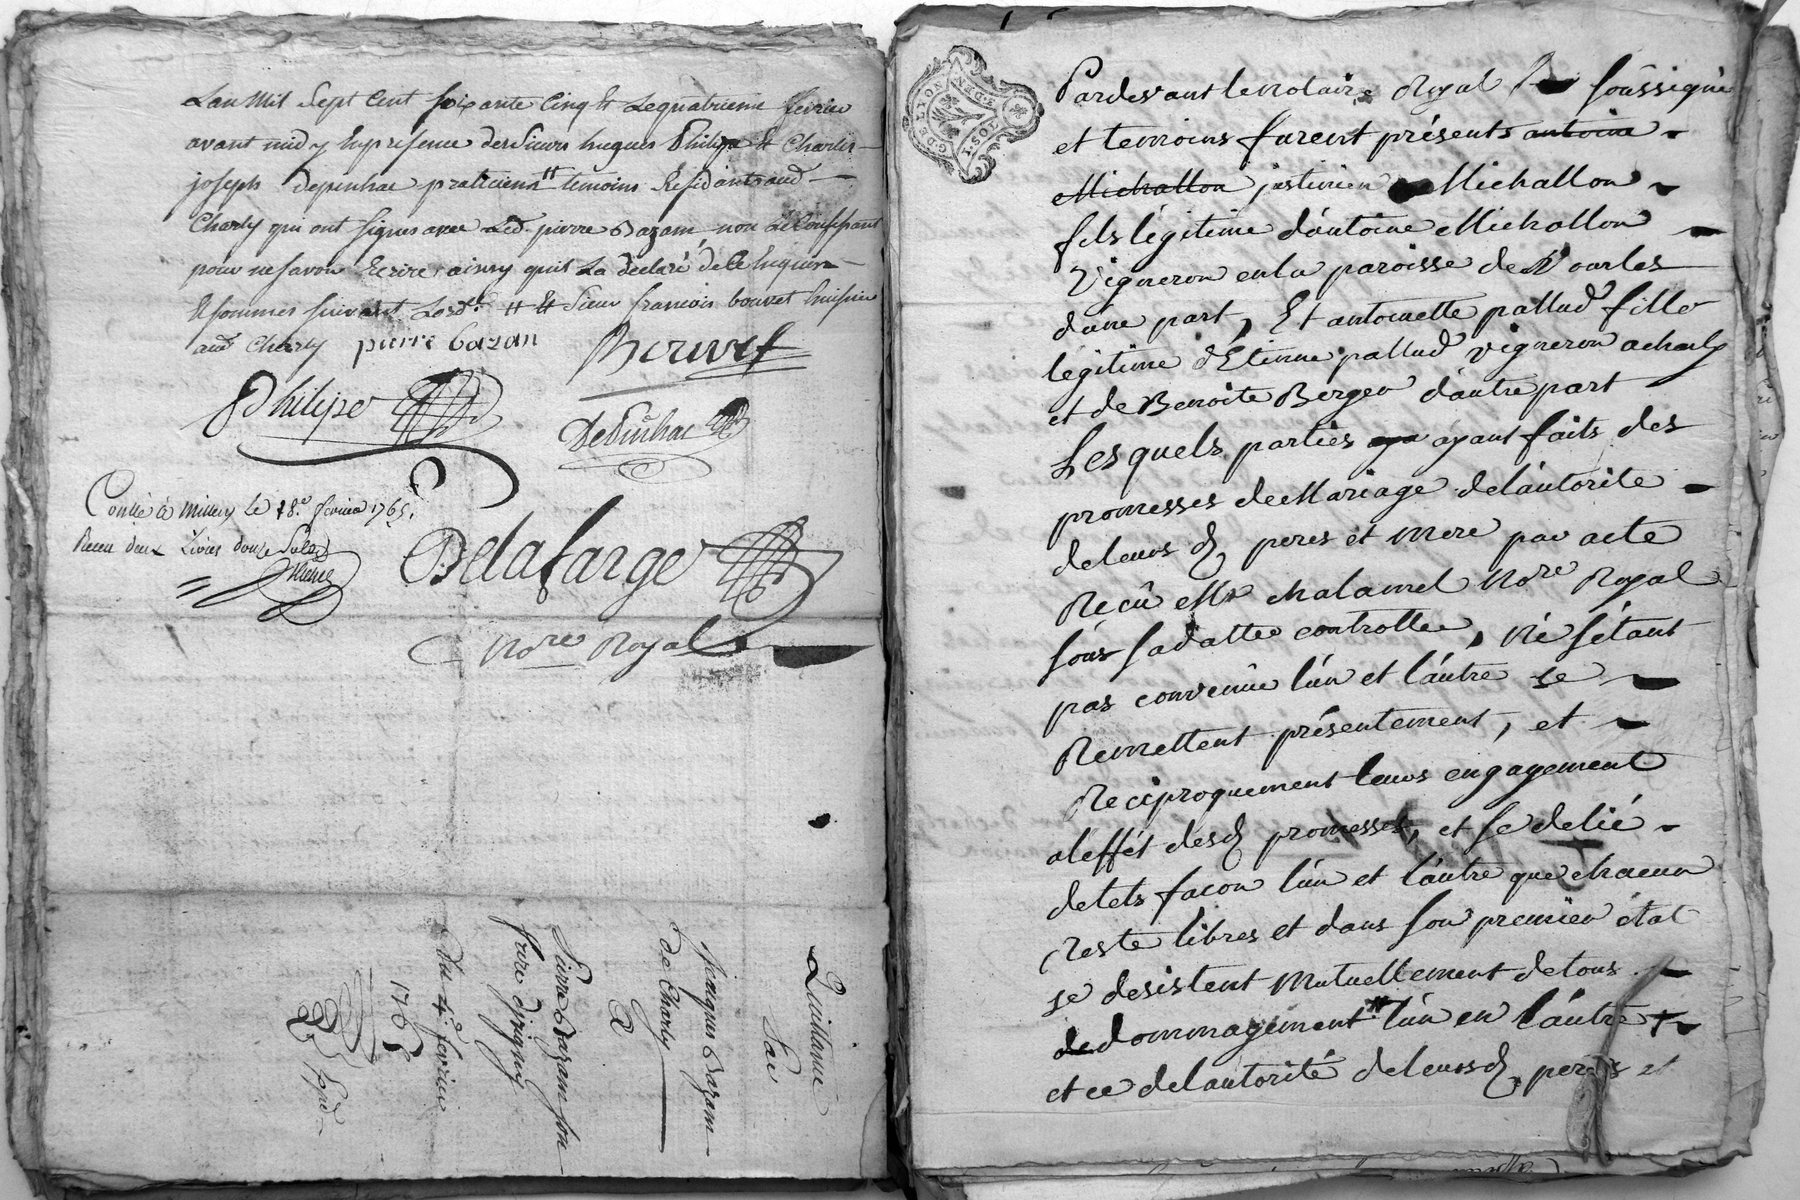 Lan Mil Sept Cent soixante Cinq Et Lequatrieme fevrier
avant midy En presence des Sieurs hugues Philipe Et Charles
joseph depinhac praticiens temoins Residants aud
Charly qui ont signes avec Led. pierre Bazam non Le Confessant
pour ne savoir Ecrire ainsy quil La declaré de Ce Enquis
Et sommes suivant Lord.ce Et Sieur francois bouvet huissier
aud Charly pierre bazan
Bouvet
Philipe
Depinhac
Con.lé à Millery le 18.e fevrier 1765.
Receu deux Livres douze Sols
Delafarge
No.re Royal
Quittance
Par
jacques Bazam
de Charly
A
Pierre Bazam son
frere dirigny
Du 4.e fevrier
1765
Exp.d
G.D. LYON
Pardevant le Notaire Royal soussigné
et temoins furent présents antoine
Michallon justinien Michallon
fils légitime d'antoine Michallon
Vigneron en la paroisse de Vourles
dune part, Et antoinette pallud fille
légitime d'Etienne pallud vigneron a charly
et de Benoite Berger d'autre part
Lesquels parties ayant faits des
promesses de Mariage de l'autorite
de leurs d. peres et mere par acte
Reçû Me chalamel No.re Royal
sous sa datte controllee, Ne sétant
pas convenûe l'un et l'autre se
Remettent présentement, et
Reciproquement leurs engagement
a l'effét desd. promesses, et se delié
de tels façon l'un et l'autre que chacun
reste libres et dans son premier état
se desistent Mutuellement de tous
dedommagement l'un en l'autre
et ce de l'autorité de leursd. peres et